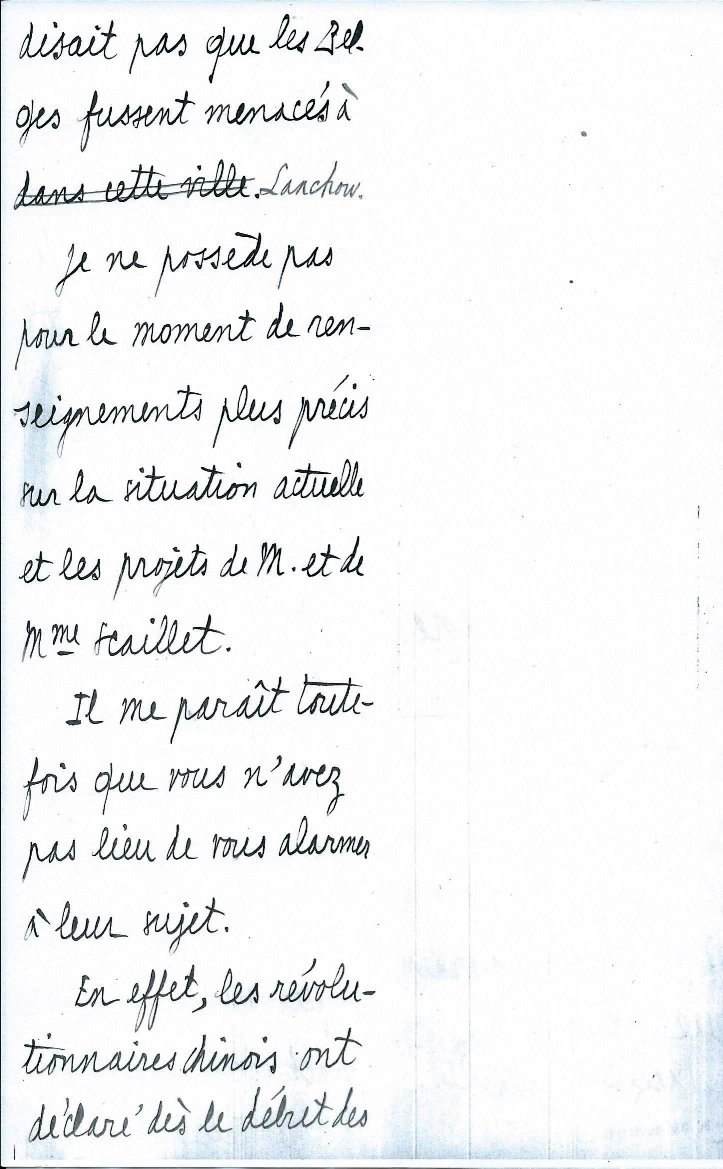 disait pas que les Bel-
ges fussent menacés à
dans cette ville. Lanchow.
Je ne possède pas
pour le moment de ren-
seignements plus précis
sur la situation actuelle
et les projets de M. et de
Mme Scaillet.
Il me paraît toute-
fois que vous n'avez
pas lieu de vous alarmer
à leur sujet.
En effet, les révolu-
tionnaires chinois ont
déclaré dès le début des